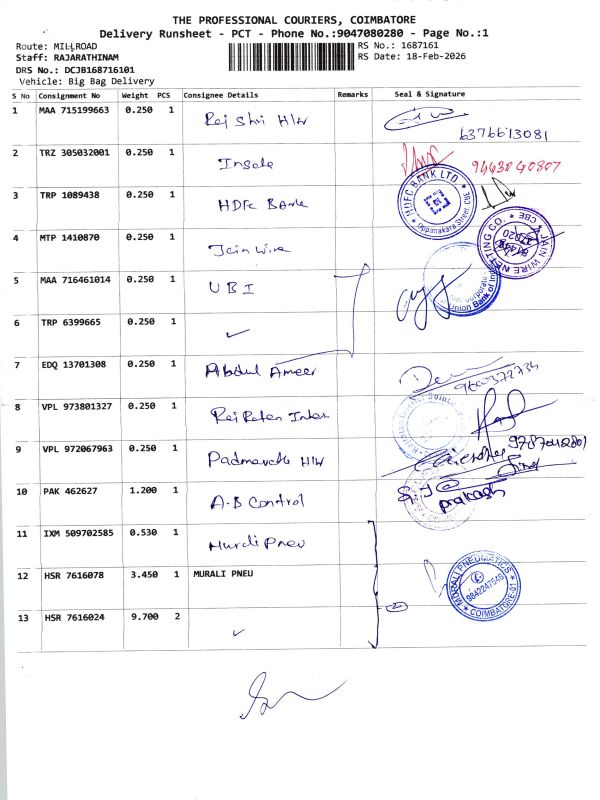 THE PROFESSIONAL COURIERS, COIMBATORE
Delivery Runsheet - PCT - Phone No.:9047080280 - Page No.:1
Route: MILLROAD
RS No.: 1687161
Staff: RAJARATHINAM
RS Date: 18-Feb-2026
DRS No.: DCJB168716101
Vehicle: Big Bag Delivery
S No Consignment No Weight PCS Consignee Details Remarks Seal & Signature
1 MAA 715199663 0.250 1 Raj Shri H/W
6376613081
2 TRZ 305032001 0.250 1
9443040807
3 TRP 1089438 0.250 1 HDFC Bank
HDFC BANK LTD
4 MTP 1410870 0.250 1 Jain Wire
JAIN WIRE NETTING CO. CBE
5 MAA 716461014 0.250 1 UBI
Union Bank of
6 TRP 6399665 0.250 1 ✓
7 EDQ 13701308 0.250 1 Abdul Ameer
8 VPL 973801327 0.250 1 Raj Ratan
9 VPL 972067963 0.250 1 Padmavathi H/W
9787042801
10 PAK 462627 1.200 1 A-B Control
prakash
11 IXM 509702585 0.530 1 Murali Pneu
12 HSR 7616078 3.450 1 MURALI PNEU
MURALI PNEUMATICS
9842247546
COIMBATORE-01
13 HSR 7616024 9.700 2 ✓
2